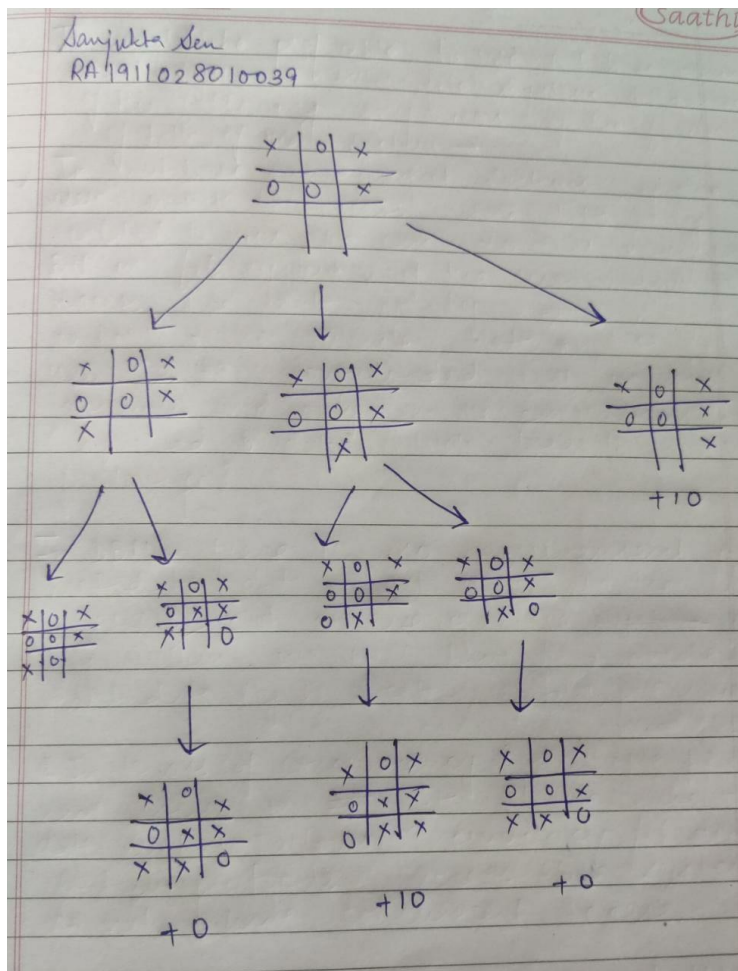 Saathi
Sanjukta Sen
RA1911028010039
X O X
O O X
X O X
O O X
X
X O X
O O X
X
X O X
O O X
X
+10
X O X
O O X
X O
X O X
O X X
X O
X O X
O O X
O X
X O X
O O X
X O
X O X
O X X
X X O
+0
X O X
O X X
O X X
+10
X O X
O O X
X X O
+0